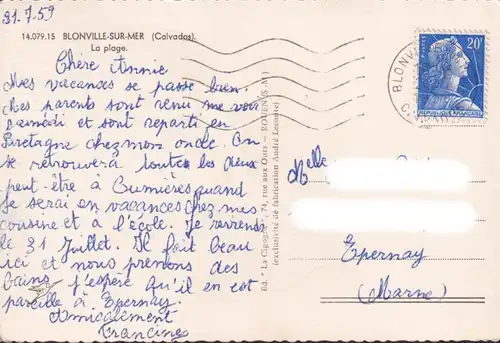 21.7.59
14.079.15 BLONVILLE-SUR-MER (Calvados).
La plage.
Chère Annie
Mes vacances se passe bien.
Mes parents sont venu me voir
samedi et sont reparti en
Bretagne chez mon oncle. On
se retrouvera toutes les deux
peut-être à Cumières quand
je serai en vacances chez mes
cousine et à l'école. Je reviens
le 31 Juillet. Il fait beau
ici et nous prenons des
bains j'espère qu'il en est
pareille à Epernay.
Amicalement
Francine
Ed. "La Cigogne", 74, rue aux Ours - ROUEN
(exclusivité de fabrication André Leconte)
20F
REPUBLIQUE FRANÇAISE
BLONVI
Melle
Epernay
(Marne)